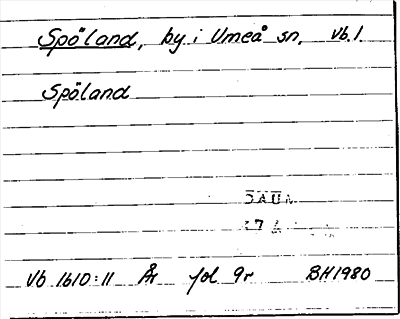 Spöland, by i Umeå sn. Vb.l.
Spåland
DAUM
Vb 1610:11 År fol 9r BH1980